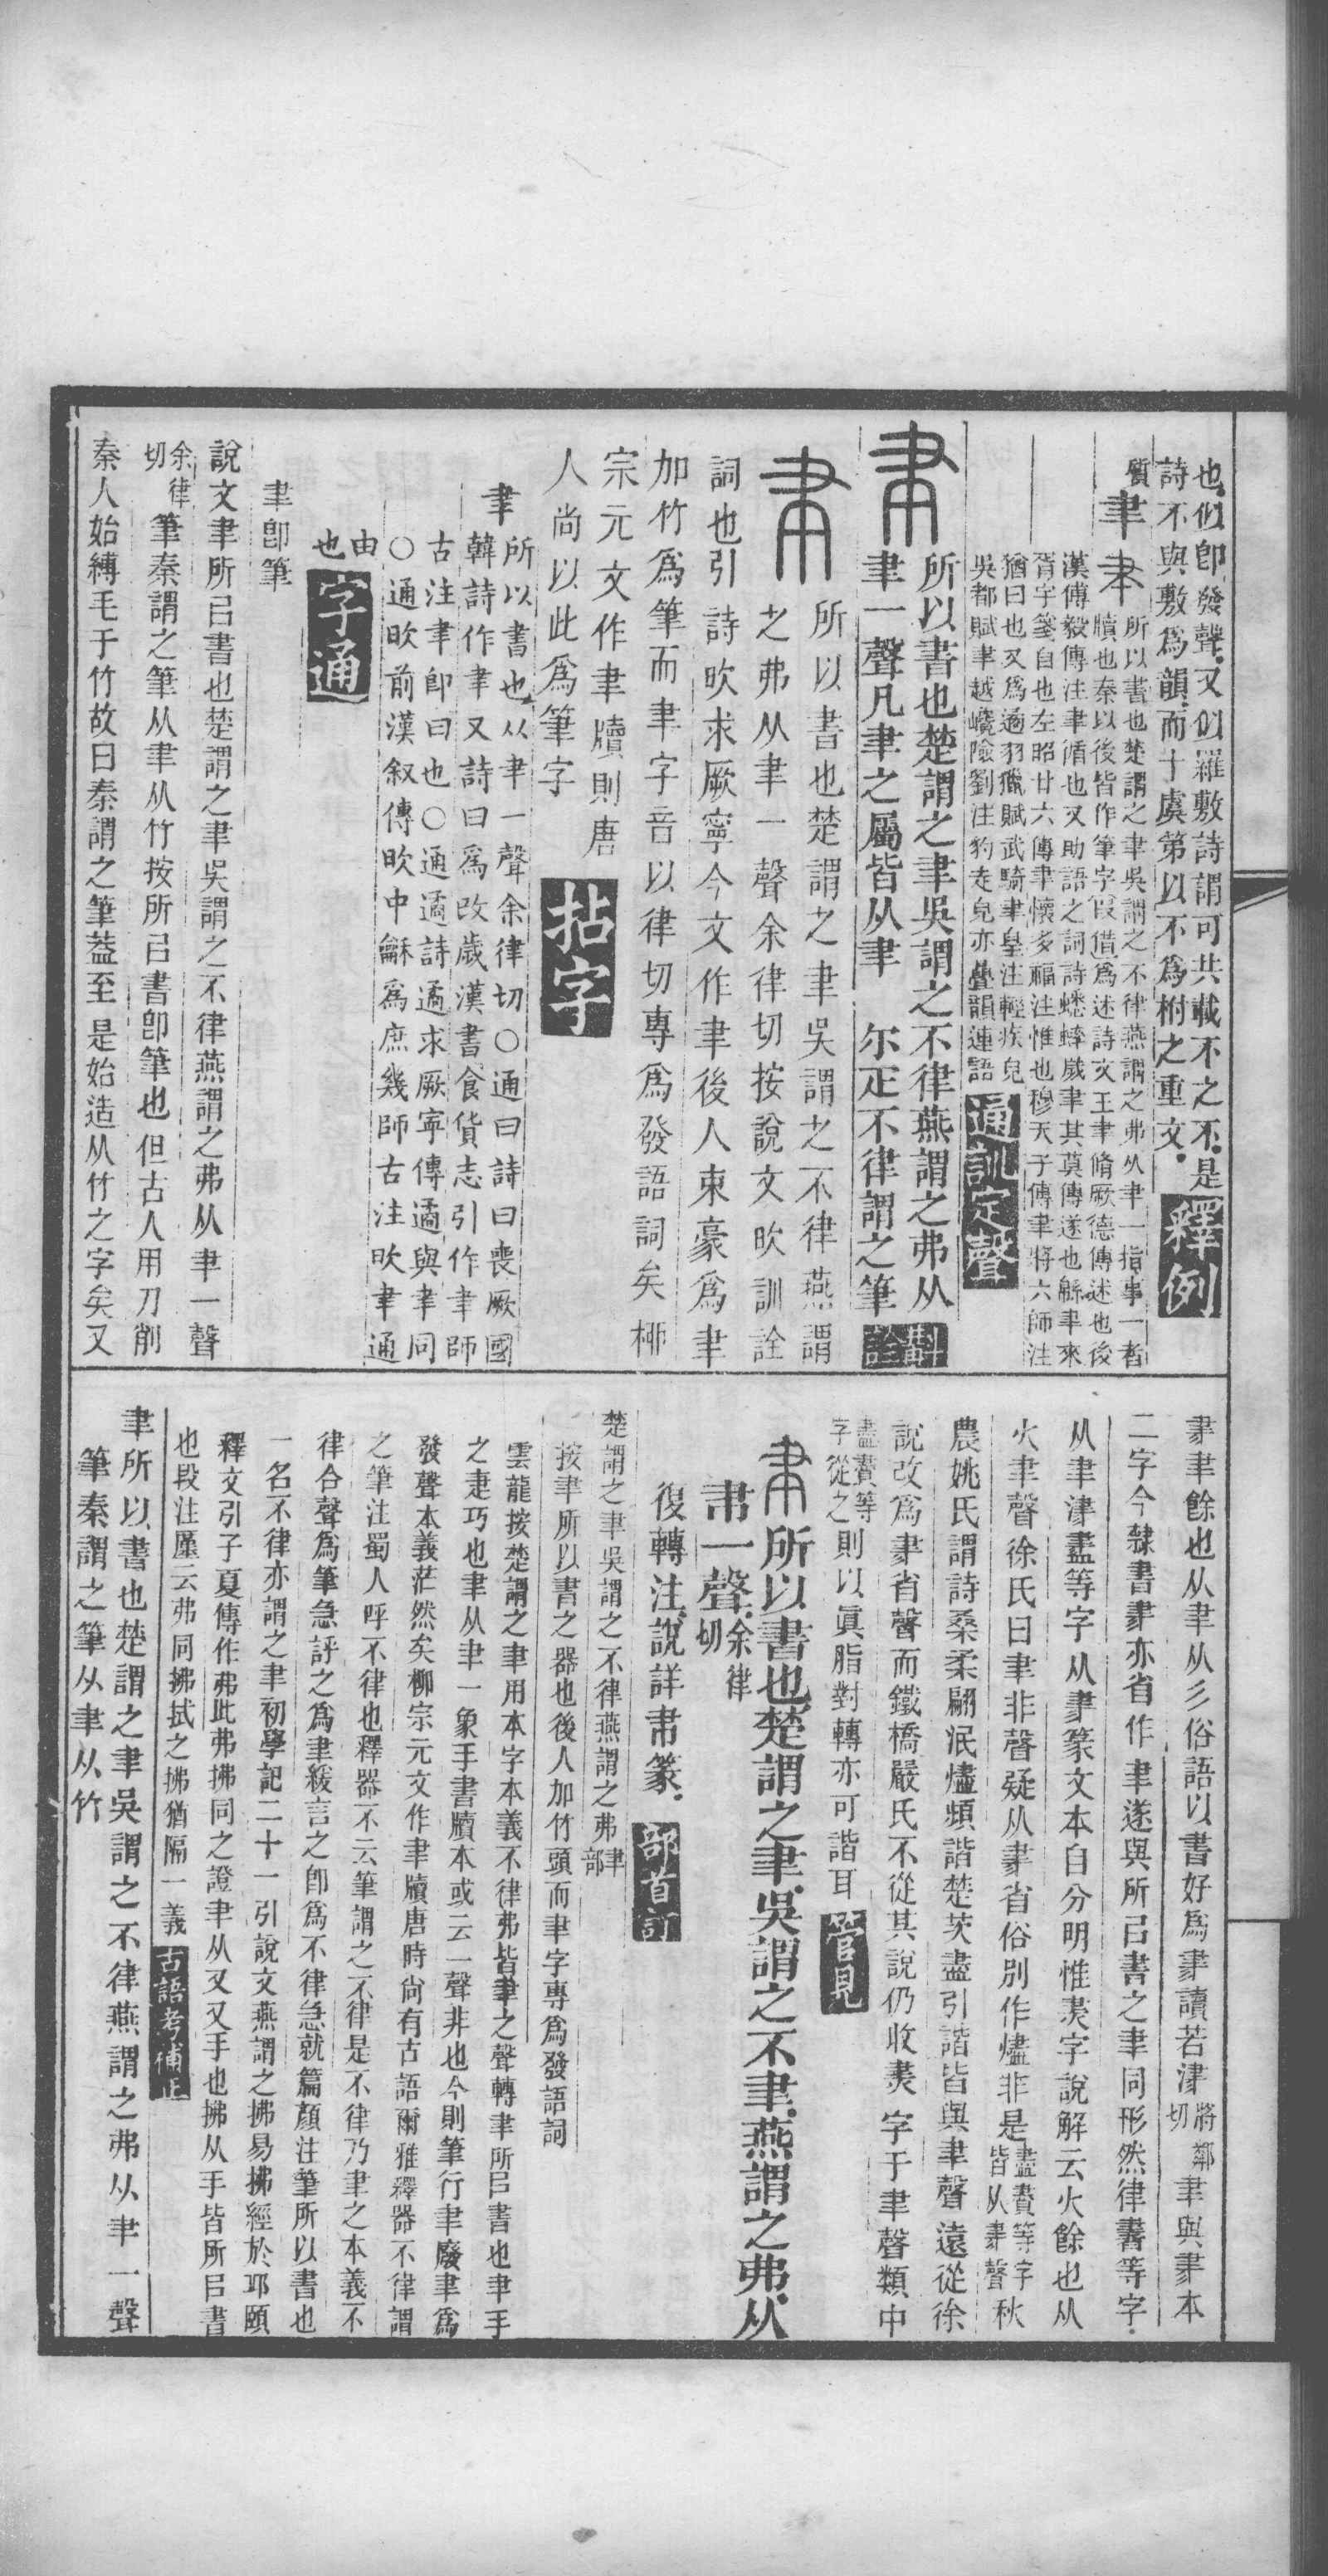 也似卽發聲又似羅敷詩謂可共載不之不是
詩不與敷爲韻而十虞第以不爲柎之重文
釋例
質
聿
所以書也楚謂之聿吳謂之不律燕謂之弗从聿一指事一者
牘也秦以後皆作筆字叚借爲述詩文王聿脩厥德傳述也後
漢傅毅傳注聿循也又助語之詞詩蟋蟀歲聿其莫傳遂也緜聿來
胥宇箋自也左昭廿六傳聿懷多福注惟也穆天子傳聿將六師注
猶曰也又爲遹羽獵賦武騎聿皇注輕疾皃
吳都賦聿越巉險劉注豹走皃亦疊韻連語
通訓定聲
所以書也楚謂之聿吳謂之不律燕謂之弗从
聿一聲凡聿之屬皆从聿 尒疋不律謂之筆
斠詮
所以書也楚謂之聿吳謂之不律燕謂
之弗从聿一聲余律切按說文欥訓詮
詞也引詩欥求厥寧今文作聿後人束豪爲聿
加竹爲筆而聿字音以律切專爲發語詞矣柳
宗元文作聿牘則唐
人尚以此爲筆字
拈字
聿
所以書也从聿一聲余律切○通曰詩曰喪厥國
韓詩作聿又詩曰爲改歲漢書食貨志引作聿師
古注聿卽曰也○通遹詩遹求厥寧傳遹與聿同
○通欥前漢叙傳欥中龢爲庶幾師古注欥聿通
由
也
字通
聿卽筆
說文聿所㠯書也楚謂之聿吳謂之不律燕謂之弗从聿一聲
余律
切
筆秦謂之筆从聿从竹按所㠯書卽筆也但古人用刀削
秦人始縛毛于竹故曰秦謂之筆蓋至是始造从竹之字矣又
𦘔聿餘也从聿从彡俗語以書好爲𦘔讀若津
將鄰
切
聿與𦘔本
二字今隸書𦘔亦省作聿遂與所㠯書之聿同形然律書等字
从聿津盡等字从𦘔篆文本自分明惟㶳字說解云火餘也从
火聿聲徐氏曰聿非聲疑从𦘔省俗別作燼非是
盡㶳等字
皆从𦘔聲
秋
農姚氏謂詩桑柔翩泯燼頻諧楚茨盡引諧皆與聿聲遠從徐
說改爲𦘔省聲而鐵橋嚴氏不從其說仍收㶳字于聿聲類中
盡㶳等
字從之
則以眞脂對轉亦可諧耳
管見
所以書也楚謂之聿吳謂之不聿燕謂之弗从
𦘒一聲
余律
切
復轉注說詳𦘒篆
部首訂
楚謂之聿吳謂之不律燕謂之弗
聿
部
按聿所以書之器也後人加竹頭而聿字專爲發語詞
雲龍按楚謂之聿用本字本義不律弗皆聿之聲轉聿所㠯書也聿手
之疌巧也聿从聿一象手書牘本或云一聲非也今則筆行聿廢聿爲
發聲本義茫然矣柳宗元文作聿牘唐時尚有古語爾雅釋器不律謂
之筆注蜀人呼不律也釋器不云筆謂之不律是不律乃聿之本義不
律合聲爲筆急評之爲聿緩言之卽爲不律急就篇顏注筆所以書也
一名不律亦謂之聿初學記二十一引說文燕謂之拂易拂經於邱頤
釋文引子夏傳作弗此弗拂同之證聿从又又手也拂从手皆所㠯書
也段注㕞云弗同拂拭之拂猶隔一義
古語考補正
聿所以書也楚謂之聿吳謂之不律燕謂之弗从聿一聲
筆秦謂之筆从聿从竹